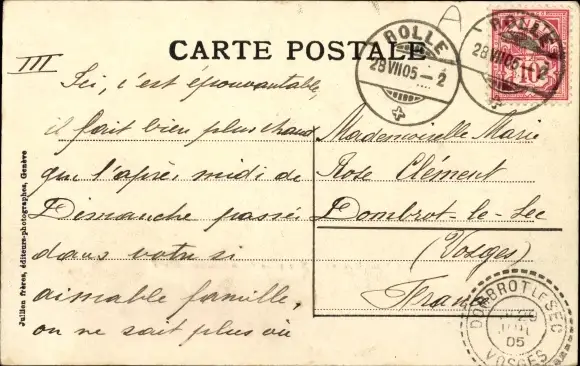 CARTE POSTALE
III
Ici, c'est épouvantable,
il fait bien plus chaud
que l'après midi de
Dimanche passé
dans votre si
aimable famille,
on ne sait plus où
Mademoiselle Marie
Rose Clément
Dombrot-le-Sec
(Vosges)
France
ROLLE
28 VII 05 - 2
ROLLE
28 VII 05 - 2
10
DOMBROT LE SEC
05
VOSGES
Jullien frères, éditeurs-photographes, Genève